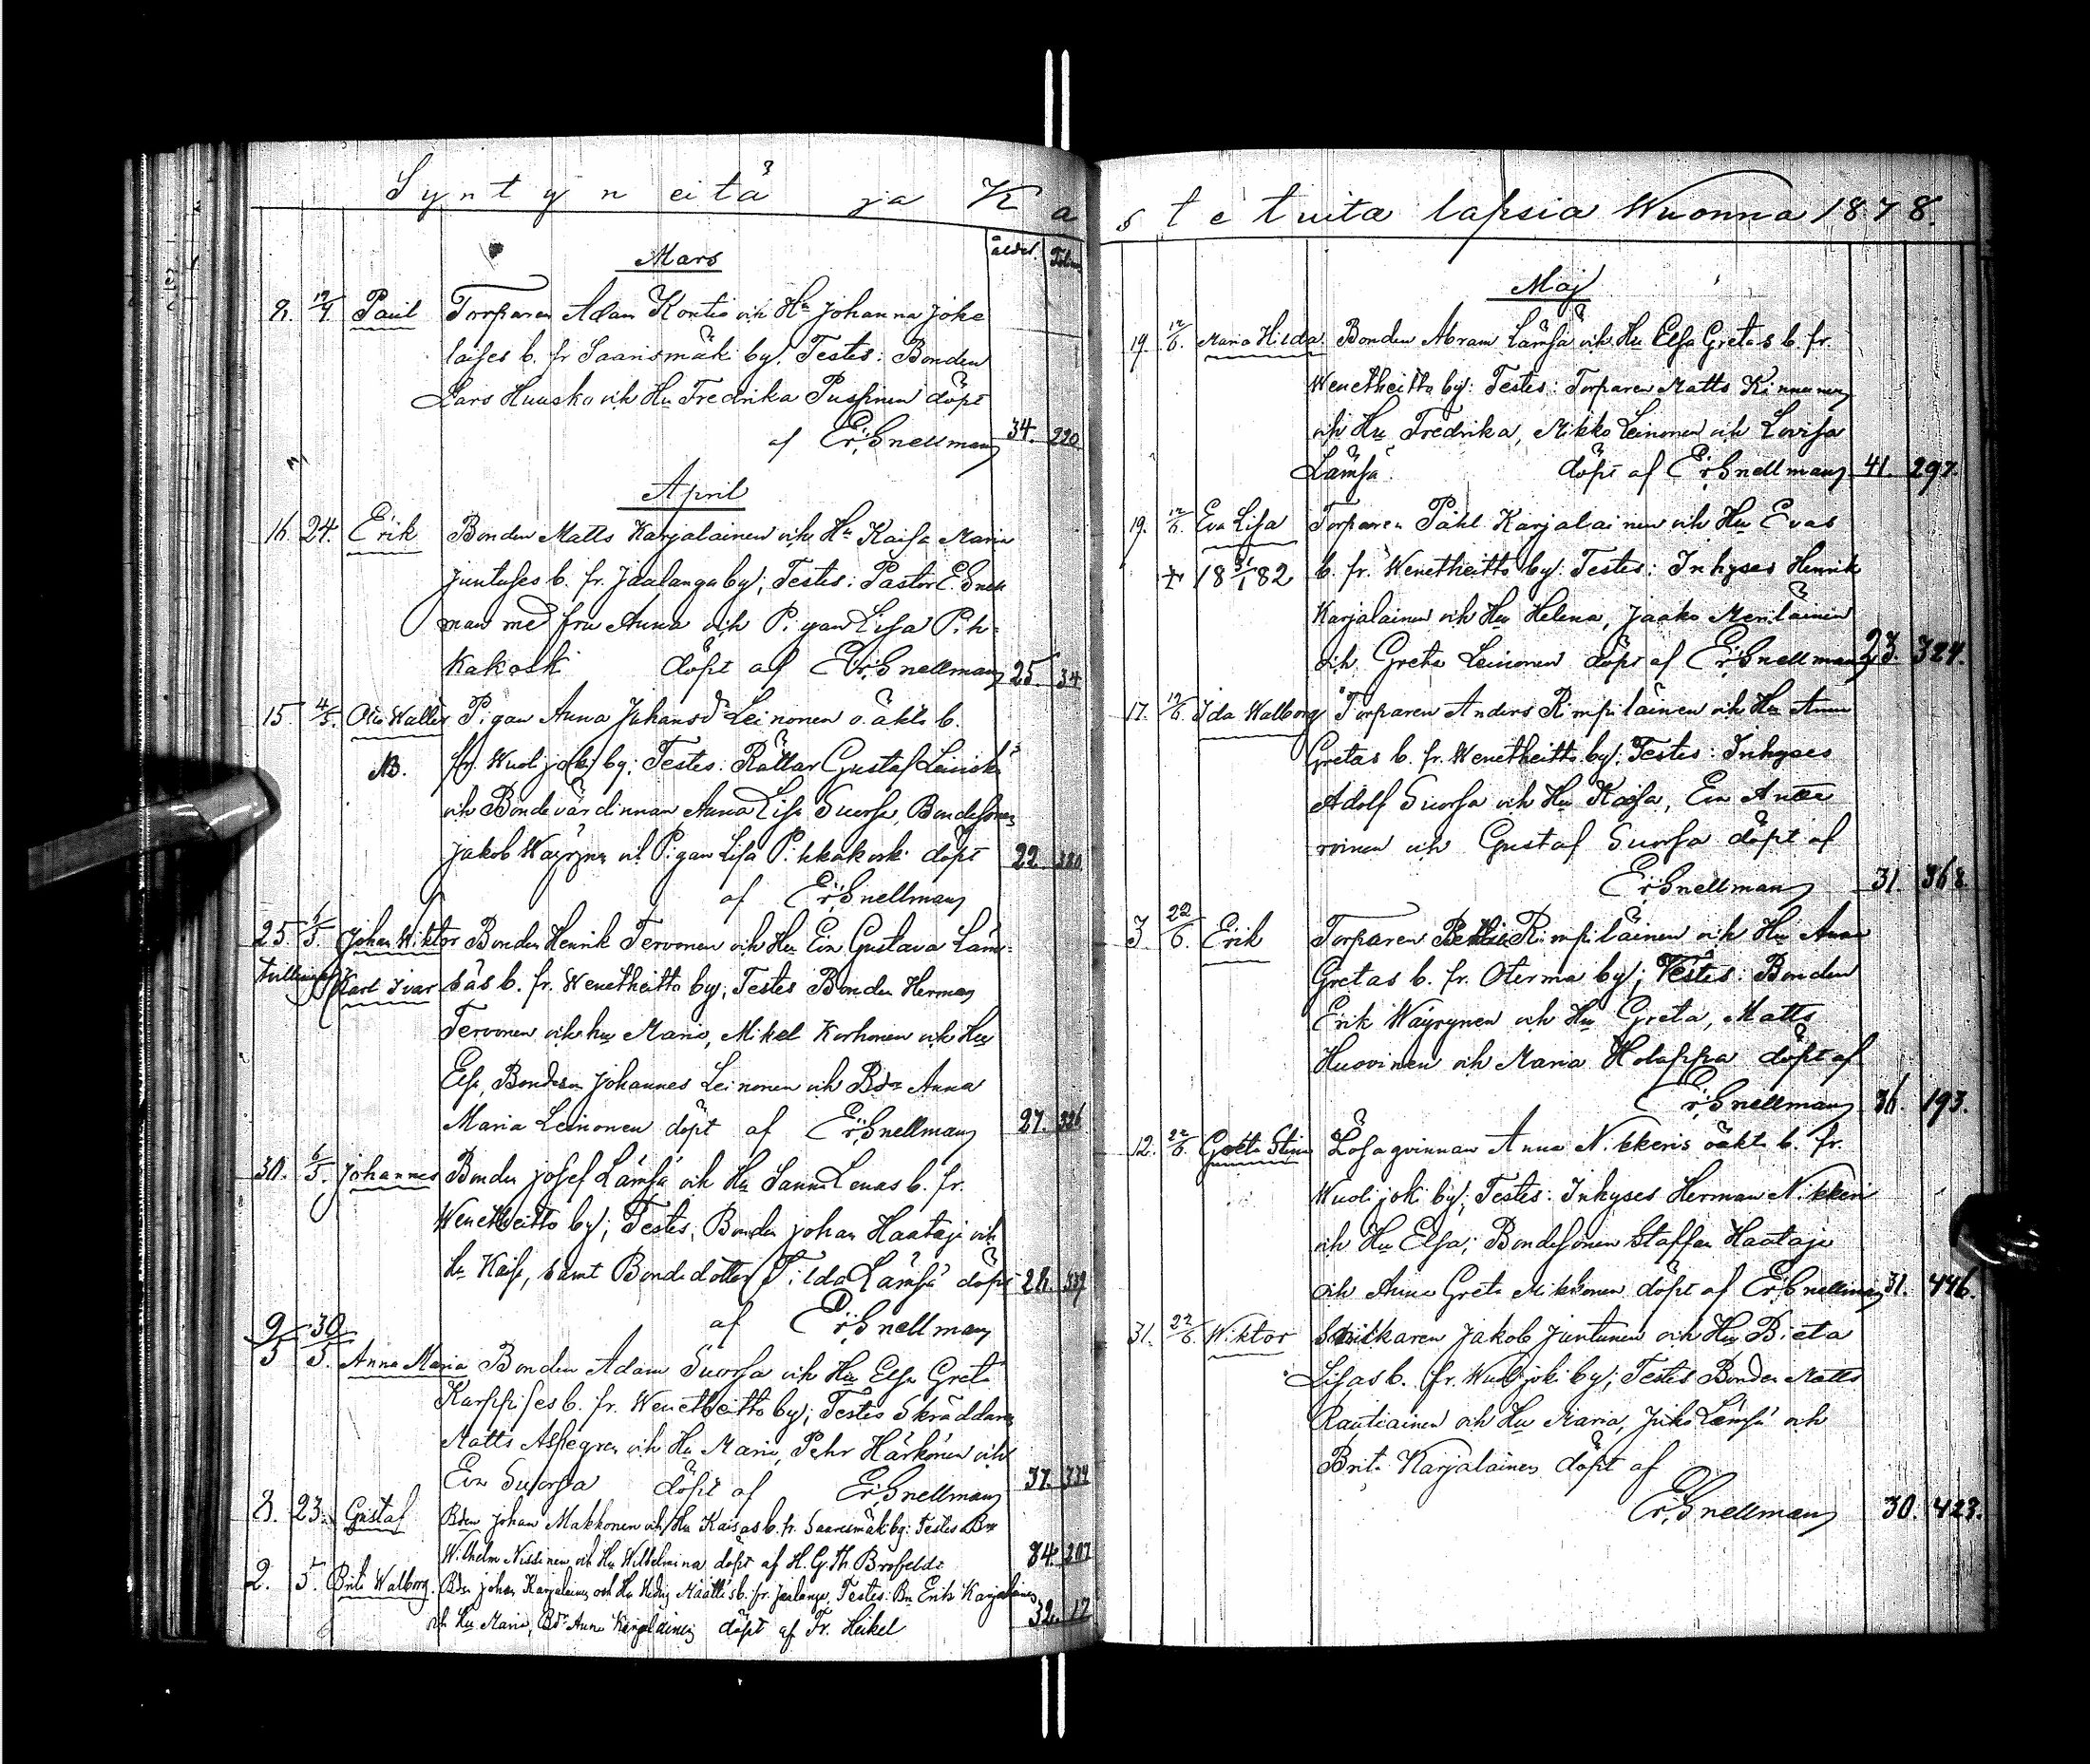 Syntyneitä ja Ka
Mars
ålder. Folium
8. 17/4 Paul Torparen Adam Kontio och Hu Johanna Joke
laises b. fr Saarismäki by. Testes: Bonden
Lars Huusko och Hu Fredrika Pussinen döpt
af Er. Snellman 34. 220.
April
16. 24. Erik Bonden Matts Karjalainen och Hu Kaisa Maria
Juntuses b. fr. Jaalanga by; Testes: Pastor E. Snell
man med fru Anna och Pigan Lisa Pih-
kakoski döpt af Er. Snellman 25. 34
15. 4/5. Otto Walter Pigan Anna Juhansdr Leinonen o. äkta b.
NB. fr. Wuolijoki by; Testes: Rättar Gustaf
och Bondevärdinnan Anna Lisa Suorsa, Bondesonen
Jakob Wäyrynen och Pigan Lisa Pihkakoski döpt 22. 380.
af Er. Snellman
25. 6/5. Johan Wiktor Bonden Henrik Tervonen och Hu Eva Gustava Läm-
tvillingar Karl Ivar säs b. fr. Wenetheitto by; Testes Bonden Herman
Tervonen och hu Maria, Mikel Korhonen och Hu
Elsa, Bondeson Johannes Leinonen och Bdr Anna
Maria Leinonen döpt af Er. Snellman 27. 326
30. 6/5. Johannes Bonden Josef Lämsä och Hu Sanna Lenas b. fr.
Wenetheitto by; Testes, Bonden Johan Haataja och
hu Kaisa, samt Bondedotter Tilda Lämsä döpt 28. 339
af Er. Snellman
9/5 30/5. Anna Maria Bonden Adam Suorsa och Hu Elsa Greta
Karppises b. fr. Wenetheitto by; Testes Skräddaren
Matts Aspegren och Hu Maria, Pehr Härkönen och
Eva Suorsa döpt af Er. Snellman 37. 332
8. 23. Gustaf Bden Johan Makkonen och Hu Kaisas b. fr. Saaresmäki by: Testes Bn
Wilhelm Nissinen och Hu Wilhelmina döpt af H. G. Th. Brofeldt 34. 207
2. 5. Brita Walborg. Bden Johan Karjalainen och Hu Hedvig Määttäs b. fr. Jaalanga, Testes: Bn Erik Karjalainen
och Hu Maria, Bdr Anna Karjalainen döpt af Fr. Heikel 32. 17
stetuita lapsia Wuonna 1878.
Maj
19. 12/6. Maria Hilda. Bonden Abram Lämsä och Hu Elsa Gretas b. fr.
Wenetheitto by: Testes: Torparen Matts Kinnunen
och Hu Fredrika, Mikko Leinonen och Lovisa
Lämsä. döpt af Er. Snellman 41. 297.
19. 12/6. Eva Lisa Torparen Påhl Karjalainen och Hu Evas
+ 18 31/1 82 b. fr. Wenetheitto by: Testes: Inhyses Henrik
Karjalainen och Hu Helena, Jaako Meriläinen
och Greta Leinonen döpt af Er. Snellman 23. 324.
17. 12/6. Ida Walborg Torparen Anders Rimpiläinen och Hu Anna
Gretas b. fr. Wenetheitto by; Testes: Inhyses
Adolf Suorsa och Hu Kaisa, Eva
roinen och Gustaf Suorsa döpt af
Er. Snellman 31. 368.
3 22/6. Erik Torparen Rimpiläinen och Hu Anna
Gretas b. fr. Oterma by; Testes: Bonden
Erik Wäyrynen och Hu Greta, Matts
Huovinen och Maria Holappa döpt af
Er. Snellman 36. 193.
12. 22/6. Greta Stina Lösaqvinnan Anna Nikkeris oäkta b. fr.
Wuolijoki by; Testes: Inhyses Herman Nikkeri
och Hu Elsa; Bondesonen Staffan Haataja
och Anna Greta Mikkonen döpt af Er. Snellman 31. 446.
31. 22/6. Wiktor Jakob Juntunen och Hu Brita
Lisas b. fr. Wuolijoki by; Testes Bonden Matts
Rautiainen och Hu Maria, Juho Lämsä och
Brita Karjalainen döpt af
Er. Snellman 30. 423.